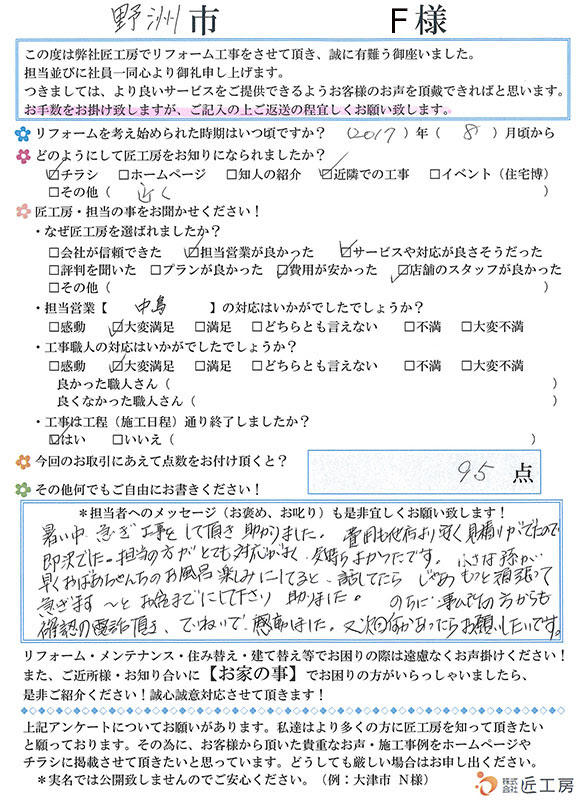 野洲市 F様
この度は弊社匠工房でリフォーム工事をさせて頂き、誠に有難う御座いました。
担当並びに社員一同心より御礼申し上げます。
つきましては、より良いサービスをご提供できるようお客様のお声を頂戴できればと思います。
お手数をお掛け致しますが、ご記入の上ご返送の程宜しくお願い致します。
リフォームを考え始められた時期はいつ頃ですか？ （2017）年（ 8 ）月頃から
どのようにして匠工房をお知りになられましたか？
☑チラシ □ホームページ □知人の紹介 ☑近隣での工事 □イベント（住宅博）
□その他（ 近く ）
匠工房・担当の事をお聞かせください！
・なぜ匠工房を選ばれましたか？
□会社が信頼できた ☑担当営業が良かった ☑サービスや対応が良さそうだった
□評判を聞いた □プランが良かった ☑費用が安かった ☑店舗のスタッフが良かった
□その他（ ）
・担当営業【 中島 】の対応はいかがでしたでしょうか？
□感動 ☑大変満足 □満足 □どちらとも言えない □不満 □大変不満
・工事職人の対応はいかがでしたでしょうか？
□感動 ☑大変満足 □満足 □どちらとも言えない □不満 □大変不満
良かった職人さん（ ）
良くなかった職人さん（ ）
・工事は工程（施工日程）通り終了しましたか？
☑はい □いいえ（ ）
今回のお取引にあえて点数をお付け頂くと？ 95 点
その他何でもご自由にお書きください！
＊担当者へのメッセージ（お褒め、お叱り）も是非宜しくお願い致します！
暑い中 急ぎ工事をして頂き 助かりました。 費用も他店より安く見積りがでたので
即決でした。担当の方がとても対応がよく、気持ちよかったです。 小さな孫が、
早くおばあちゃんちのお風呂楽しみにしてると、話してたら じゃあ もっと頑張って
急ぎます 〜と お盆までにして下さり 助かりました。 のちに 事ムの方からも
確認の電話頂き、ていねいで 感動しました。又次回何かあったらお願いしたいです。
リフォーム・メンテナンス・住み替え・建て替え等でお困りの際は遠慮なくお声掛けください！
また、ご近所様・お知り合いに【お家の事】でお困りの方がいらっしゃいましたら、
是非ご紹介ください！誠心誠意対応させて頂きます！
上記アンケートについてお願いがあります。私達はより多くの方に匠工房を知って頂きたい
と願っております。その為に、お客様から頂いた貴重なお声・施工事例をホームページや
チラシに掲載させて頂きたいと思っています。どうしても厳しい場合はお申し出ください。
＊実名では公開致しませんのでご安心ください。（例：大津市 N様）
株式会社 匠工房